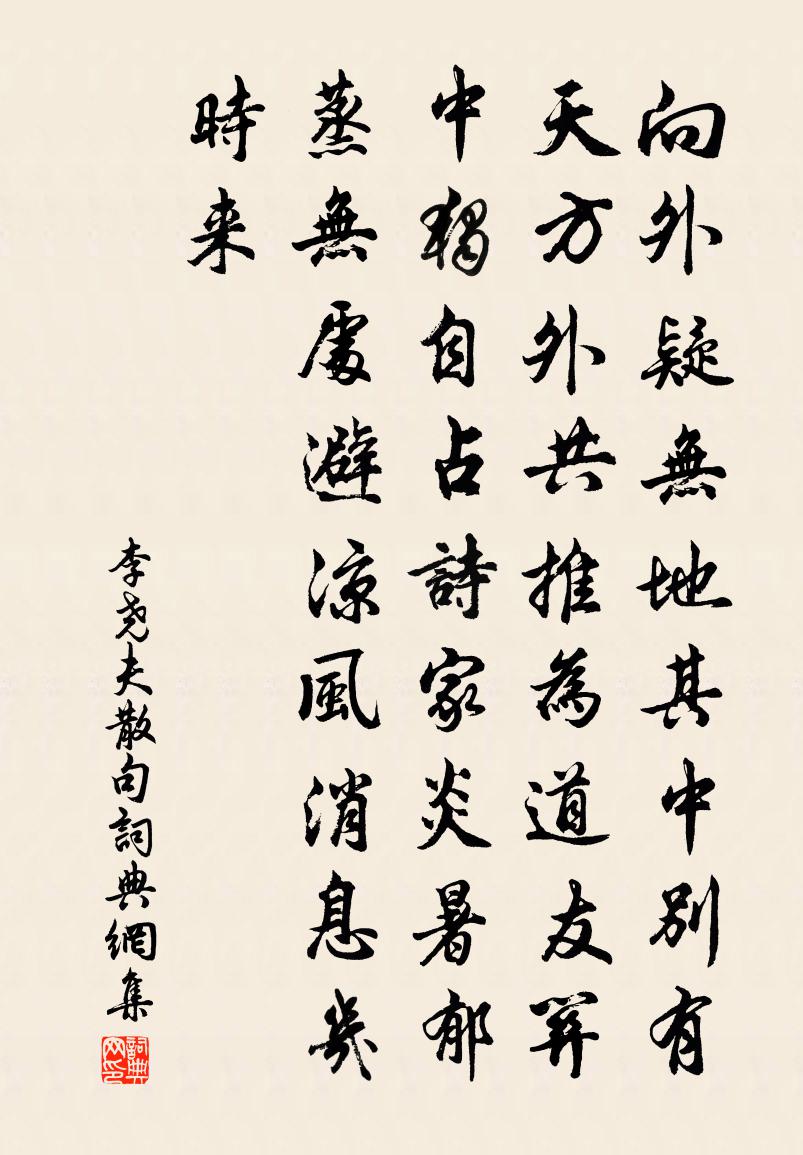 向外疑無地其中別有
天方外共推為道友關
中獨自占詩家炎暑郁
蒸無處避涼風消息幾
時来
李尧夫散句詞典網集
詞典网印